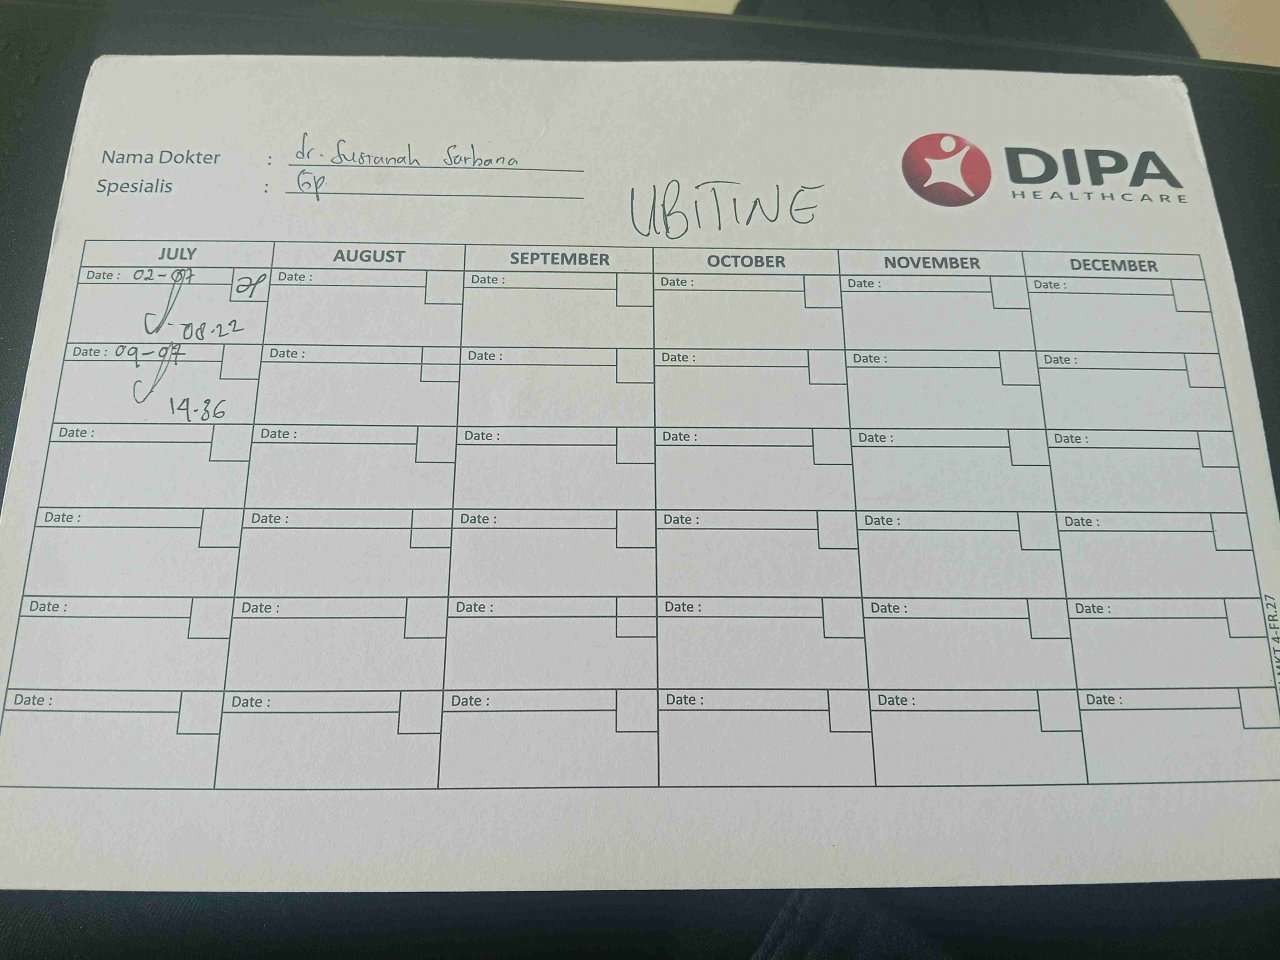 Nama Dokter : dr. Susranah Sarbana
Spesialis : Gp
UBITINE
DIPA
HEALTHCARE
JULY AUGUST SEPTEMBER OCTOBER NOVEMBER DECEMBER
Date : 02-07 Date : Date : Date : Date : Date :
08.22
Date : 09-07 Date : Date : Date : Date : Date :
14.36
Date : Date : Date : Date : Date : Date :
Date : Date : Date : Date : Date : Date :
Date : Date : Date : Date : Date : Date :
Date : Date : Date : Date : Date : Date :
MKT.4-FR.27